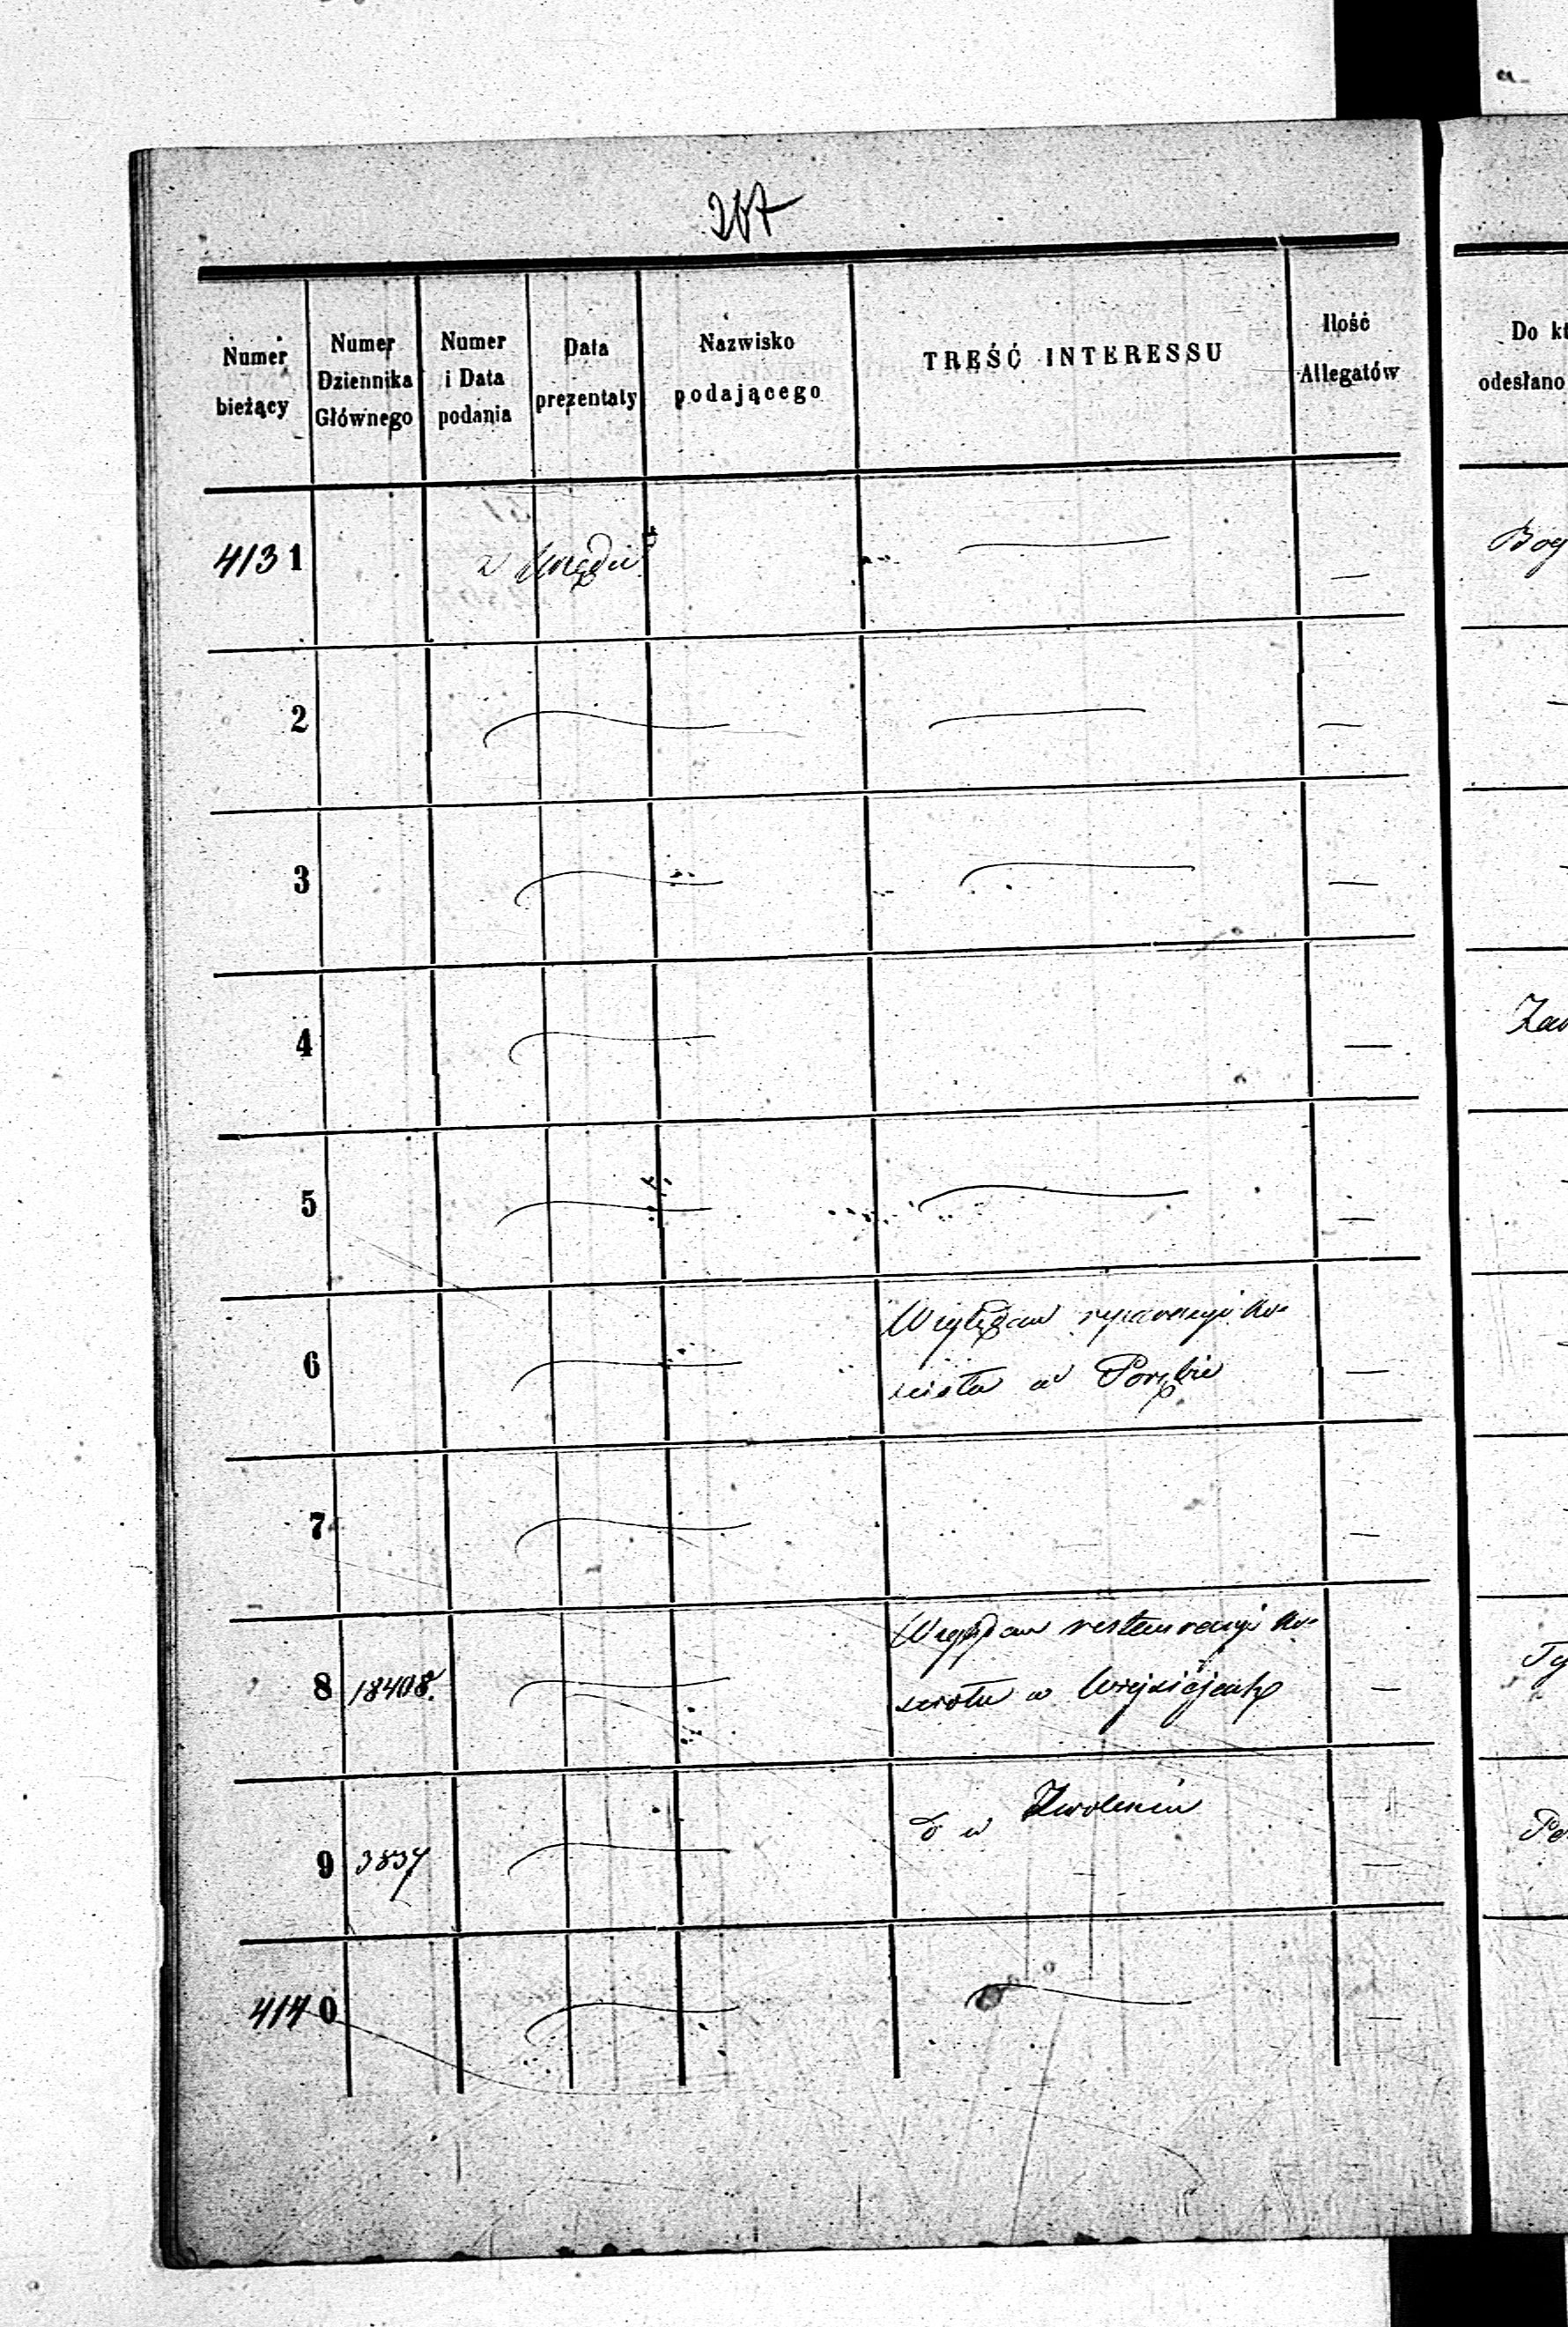 267
Numer bieżący
Numer Dziennika Głównego
Numer i Data podania
Data prezentaty
Nazwisko podającego
TREŚĆ INTERESSU
Ilość Allegatów
Do kt
odesłano
4131 z Urzędu — —
Bog
2 — — —
3 — — —
4 — —
Zaw
5 — — —
6 — Względem reparacyi ko-
ścioła w Porębie —
7 — —
8 18408. — Względem restauracyi ko-
ścioła w —
Ty
9 3837 — do w Zwoleniu —
Po
4140 — — —